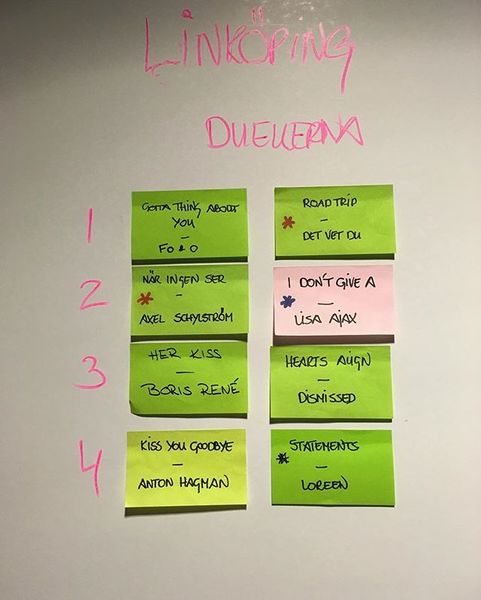 LINKÖPING
DUELLERNA
1
GOTTA THING ABOUT
YOU
-
FO & O
* ROADTRIP
-
DET VET DU
2
* NÄR INGEN SER
-
AXEL SCHYLSTRÖM
* I DON'T GIVE A
-
LISA AJAX
3
HER KISS
-
BORIS RENÉ
HEARTS ALIGN
-
DISMISSED
4
KISS YOU GOODBYE
-
ANTON HAGMAN
* STATEMENTS
-
LOREEN